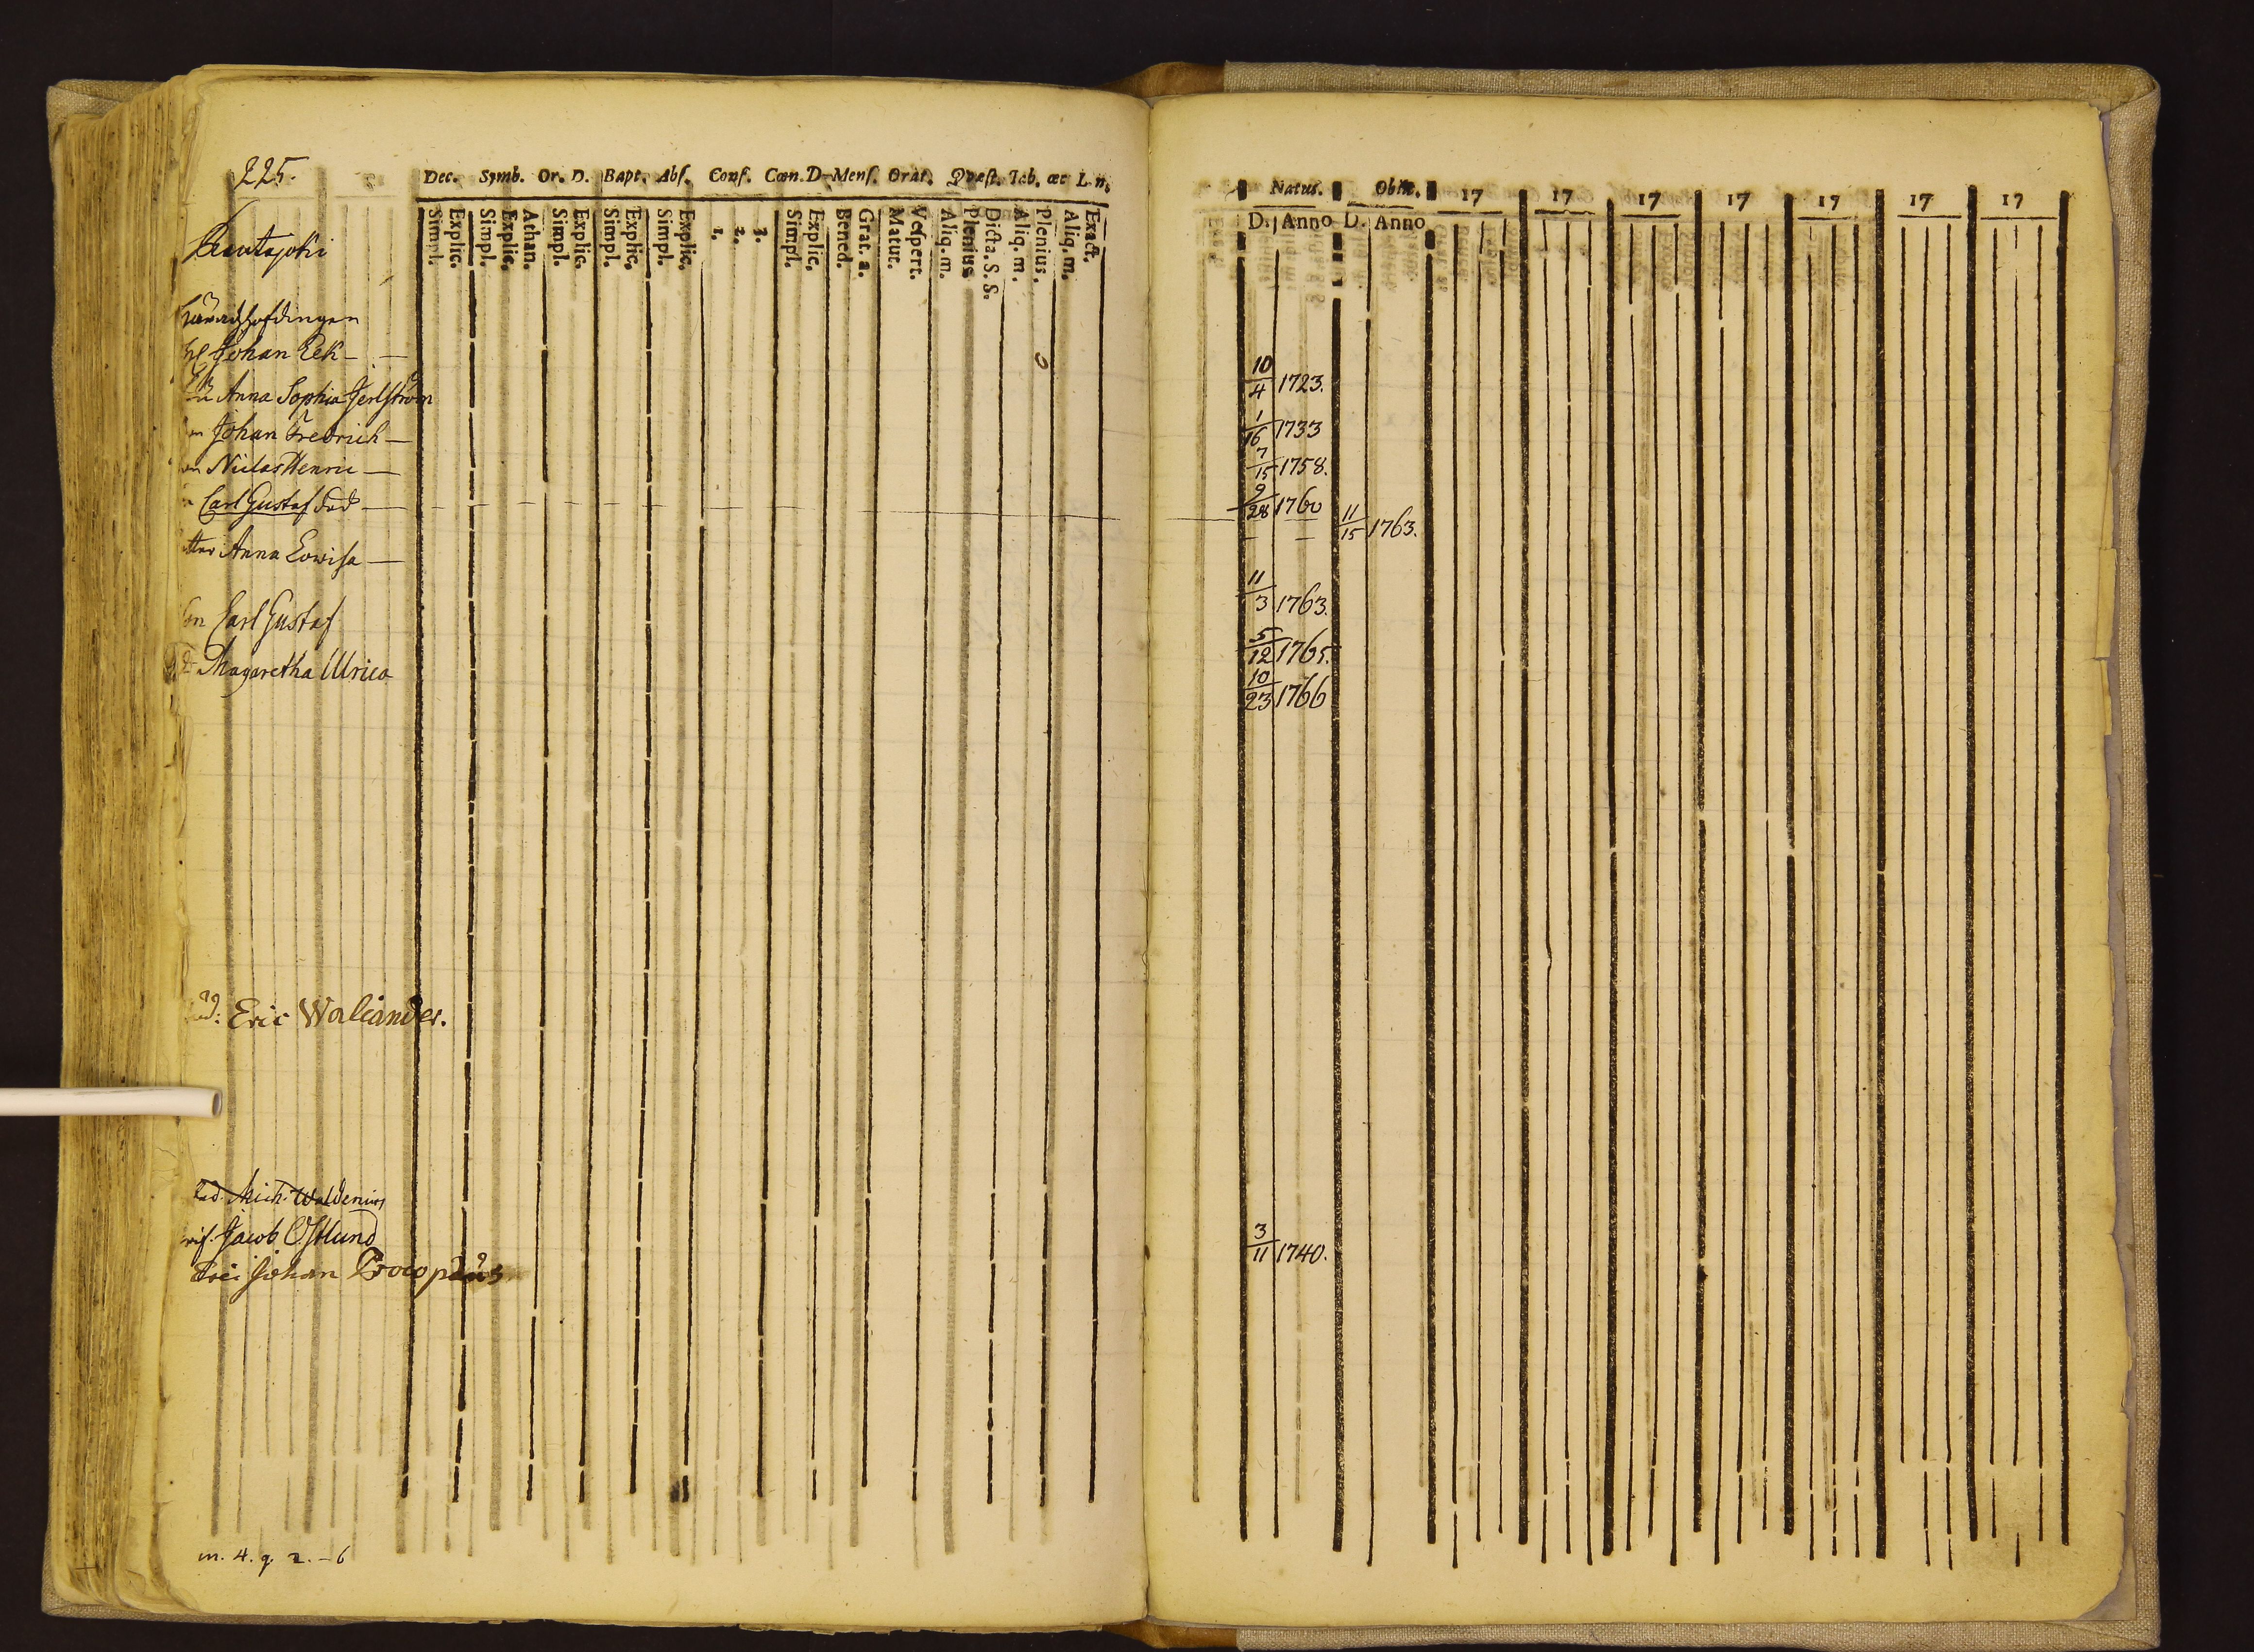 225.
Dec. Symb. Or. D. Bapt. Abſ. Conf. Cœn. D. Menſ. Orat. Quæſt. Tab. œc L. n.
Simpl. Explic. Simpl. Explic. Athan. Simpl. Explic. Simpl. Explic. Simpl. Explic. 1. 2. 3. Simpl. Explic. Bened. Grat. a. Matut. Veſpert. Aliq. m. Plenius Dicta. S. S. Aliq. m. Plenius. Aliq. m. Exact.
Rautajoki
Häradshöfdingen
Johan Rek
Anna Sophia Jerlström
Johan Fredrich
Niclas Henric
Carl Gustaf död
Anna Lowisa
Carl Gustaf
Magaretha Ulrica
Eric Waliander.
Mich: Waldenius
Jacob Ostlund
Johan Procopæus
m. 4. q. 2. - 6
Natus. Obiit. 17 17 17 17 17 17 17
D. Anno D. Anno
10/4 1723.
1/16 1733
7/15 1758.
9/28 1760
11/15 1763.
11/3 1763.
5/12 1765.
10/23 1766
3/11 1740.